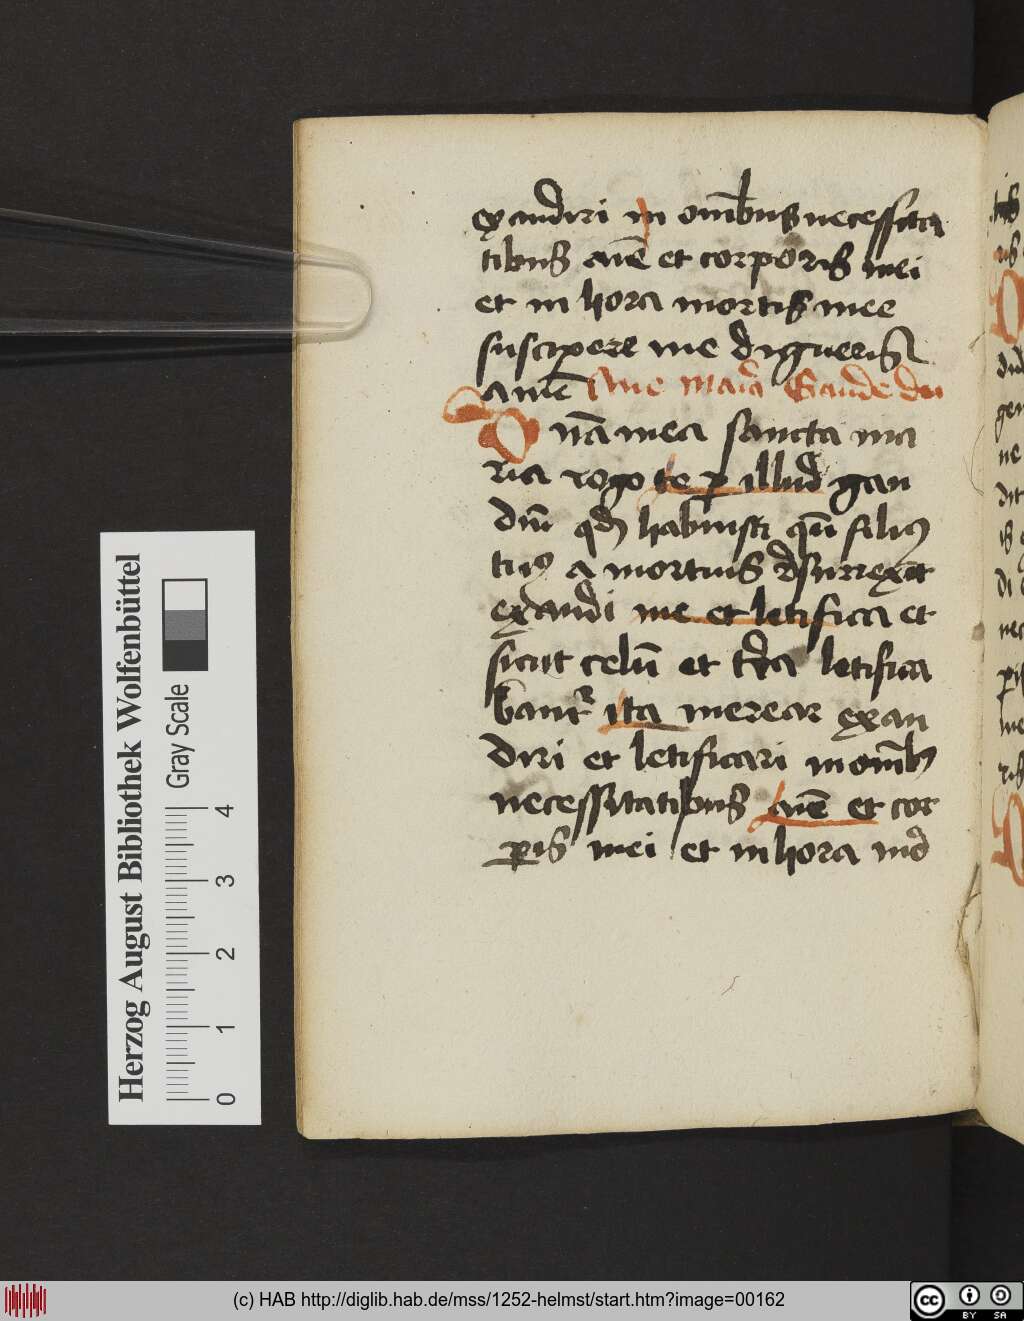 exaudiri in om̄ibus necessita
tibus aīe et corporis mei
et in hora mortis mee
suscipere me digneris
amē Aue maria Gaude du
O nā mea sancta ma
ria rogo te ꝑ illud gau
diū qd̄ habuisti qn̄ filiꝰ
tuꝰ a mortuis resurrexit
exaudi me et letifica et
sicut celū et tr̄ra letifica
bant᷑ ita merear exau
diri et letificari in om̄ibꝫ
necessitatibus aīe et cor
ꝑis mei et in hora
Herzog August Bibliothek Wolfenbüttel
Gray Scale
0 1 2 3 4
(c) HAB http://diglib.hab.de/mss/1252-helmst/start.htm?image=00162
cc BY SA